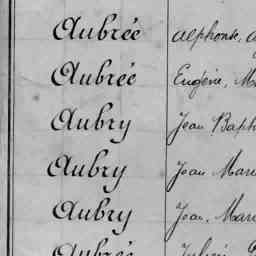 Aubrée Alphonse,
Aubrée Eugène,
Aubry Jean
Aubry Jean Marie
Aubry Jean, Marie
Aubrée Julien